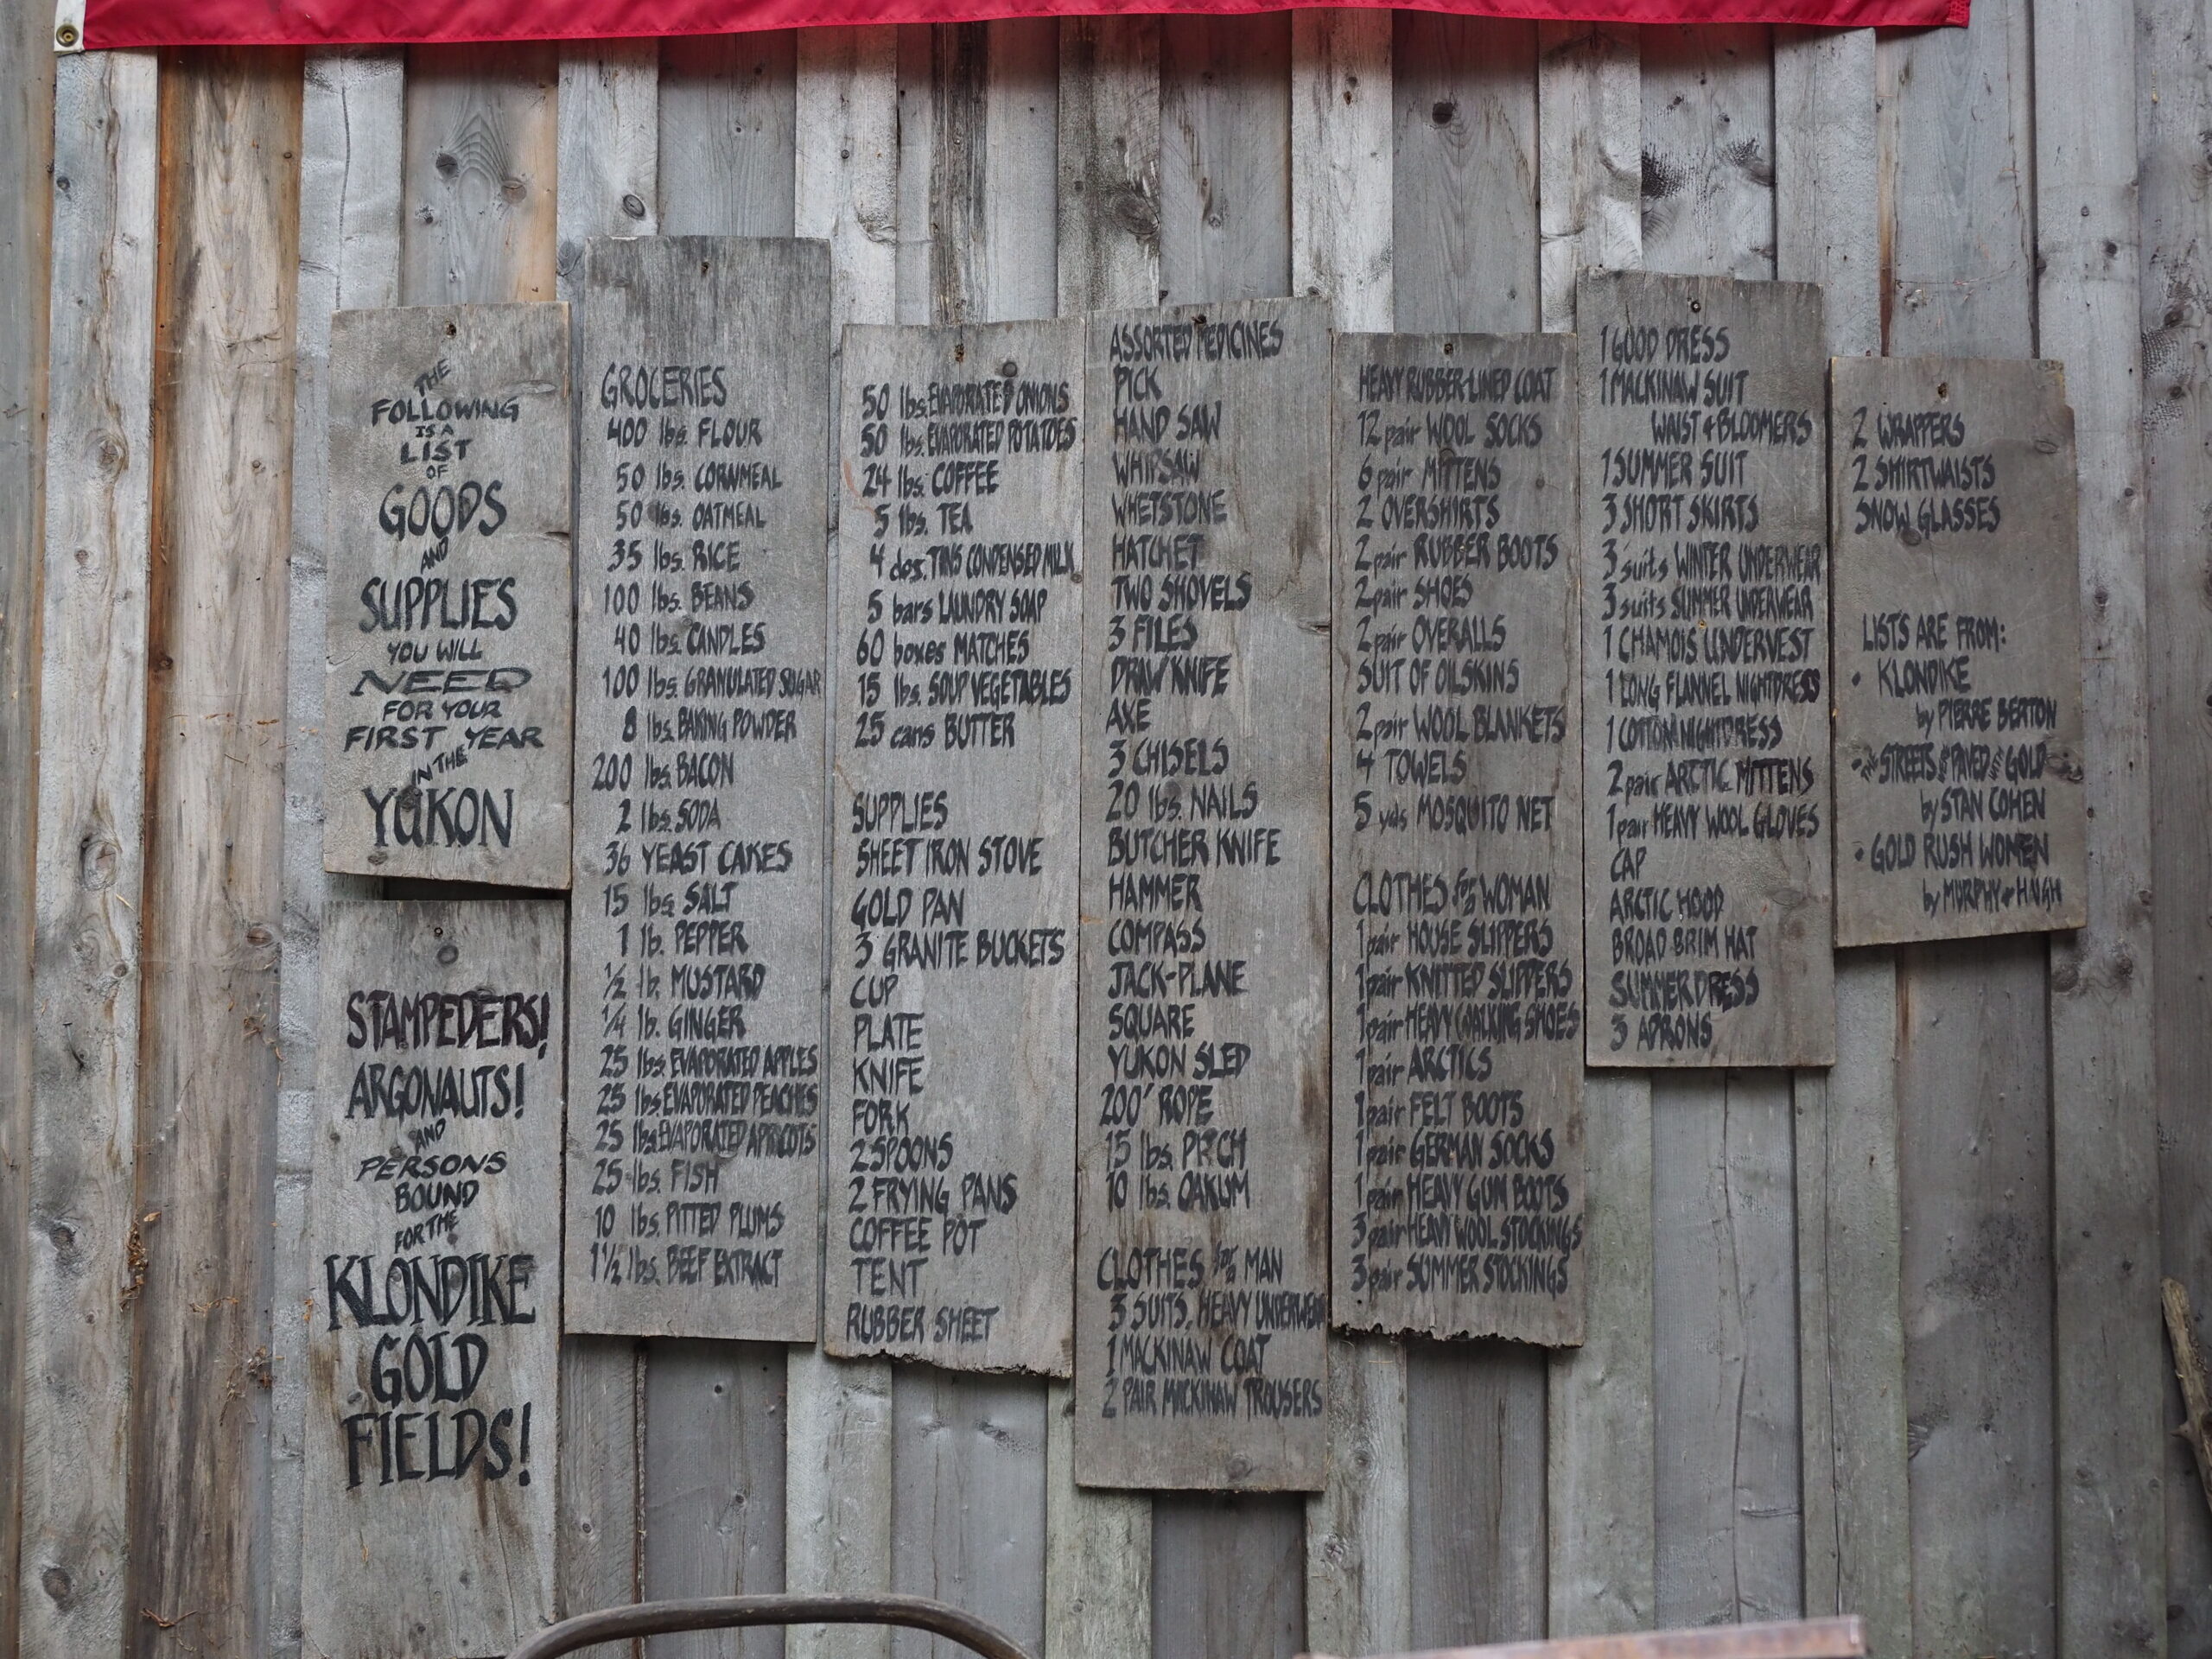 THE
FOLLOWING
IS A
LIST
OF
GOODS
AND
SUPPLIES
YOU WILL
NEED
FOR YOUR
FIRST YEAR
IN THE
YUKON
STAMPEDERS!
ARGONAUTS!
AND
PERSONS
BOUND
FOR THE
KLONDIKE
GOLD
FIELDS!
GROCERIES
400 lbs. FLOUR
50 lbs. CORNMEAL
50 lbs. OATMEAL
35 lbs. RICE
100 lbs. BEANS
40 lbs. CANDLES
100 lbs. GRANULATED SUGAR
8 lbs. BAKING POWDER
200 lbs. BACON
2 lbs. SODA
36 YEAST CAKES
15 lbs. SALT
1 lb. PEPPER
1/2 lb. MUSTARD
1/4 lb. GINGER
25 lbs. EVAPORATED APPLES
25 lbs. EVAPORATED PEACHES
25 lbs. EVAPORATED APRICOTS
25 lbs. FISH
10 lbs. PITTED PLUMS
1 1/2 lbs. BEEF EXTRACT
50 lbs. EVAPORATED ONIONS
50 lbs. EVAPORATED POTATOES
24 lbs. COFFEE
5 lbs. TEA
4 dos. TINS CONDENSED MILK
5 bars LAUNDRY SOAP
60 boxes MATCHES
15 lbs. SOUP VEGETABLES
25 cans BUTTER
SUPPLIES
SHEET IRON STOVE
GOLD PAN
3 GRANITE BUCKETS
CUP
PLATE
KNIFE
FORK
2 SPOONS
2 FRYING PANS
COFFEE POT
TENT
RUBBER SHEET
ASSORTED MEDICINES
PICK
HAND SAW
WHIPSAW
WHETSTONE
HATCHET
TWO SHOVELS
3 FILES
DRAW KNIFE
AXE
3 CHISELS
20 lbs. NAILS
BUTCHER KNIFE
HAMMER
COMPASS
JACK-PLANE
SQUARE
YUKON SLED
200' ROPE
15 lbs. PITCH
10 lbs. OAKUM
CLOTHES for MAN
3 SUITS, HEAVY UNDERWEAR
1 MACKINAW COAT
2 PAIR MACKINAW TROUSERS
HEAVY RUBBER-LINED COAT
12 pair WOOL SOCKS
6 pair MITTENS
2 OVERSHIRTS
2 pair RUBBER BOOTS
2 pair SHOES
2 pair OVERALLS
SUIT OF OILSKINS
2 pair WOOL BLANKETS
4 TOWELS
5 yds MOSQUITO NET
CLOTHES for WOMAN
1 pair HOUSE SLIPPERS
1 pair KNITTED SLIPPERS
1 pair HEAVY WALKING SHOES
1 pair ARCTICS
1 pair FELT BOOTS
1 pair GERMAN SOCKS
1 pair HEAVY GUM BOOTS
3 pair HEAVY WOOL STOCKINGS
3 pair SUMMER STOCKINGS
1 GOOD DRESS
1 MACKINAW SUIT
WAIST & BLOOMERS
1 SUMMER SUIT
3 SHORT SKIRTS
3 suits WINTER UNDERWEAR
3 suits SUMMER UNDERWEAR
1 CHAMOIS UNDERVEST
1 LONG FLANNEL NIGHTDRESS
1 COTTON NIGHTDRESS
2 pair ARCTIC MITTENS
1 pair HEAVY WOOL GLOVES
CAP
ARCTIC HOOD
BROAD BRIM HAT
SUMMER DRESS
3 APRONS
2 WRAPPERS
2 SHIRTWAISTS
SNOW GLASSES
LISTS ARE FROM:
• KLONDIKE
by PIERRE BERTON
• THE STREETS WERE PAVED WITH GOLD
by STAN COHEN
• GOLD RUSH WOMEN
by MURPHY & HAIGH